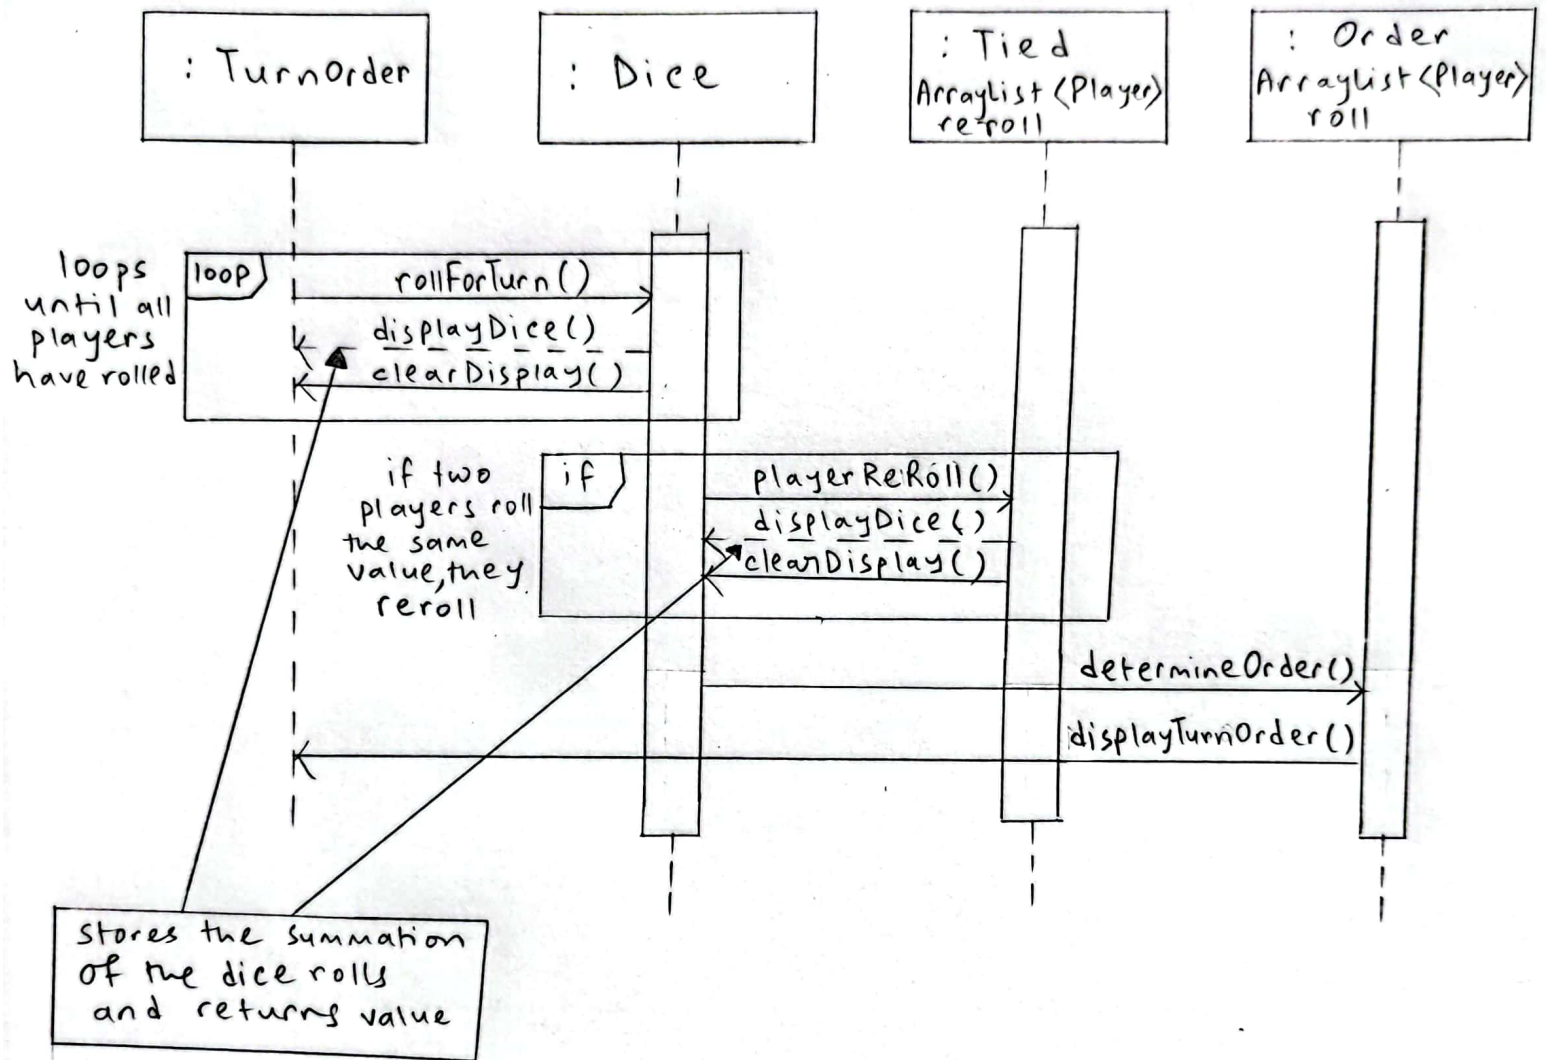 : TurnOrder
: Dice
: Tied
ArrayList<Player>
re-roll
: Order
ArrayList<Player>
roll
loops
until all
players
have rolled
loop
rollForTurn()
displayDice()
clearDisplay()
if two
players roll
the same
value, they
reroll
if
playerReRoll()
displayDice()
clearDisplay()
determineOrder()
displayTurnOrder()
stores the summation
of the dice rolls
and returns value